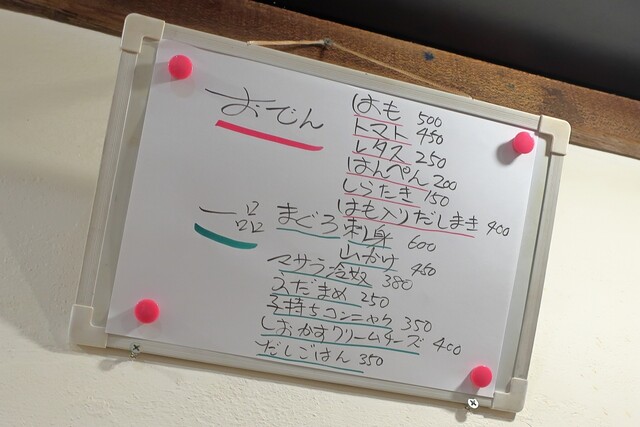 おでん
はも 500
トマト 450
レタス 250
はんぺん 200
しらたき 150
はも入りだしまき 400
一品
まぐろ刺身 600
山かけ 450
マサラ冷奴 380
えだまめ 250
子持ちコンニャク 350
しおかすクリームチーズ 400
だしごはん 350